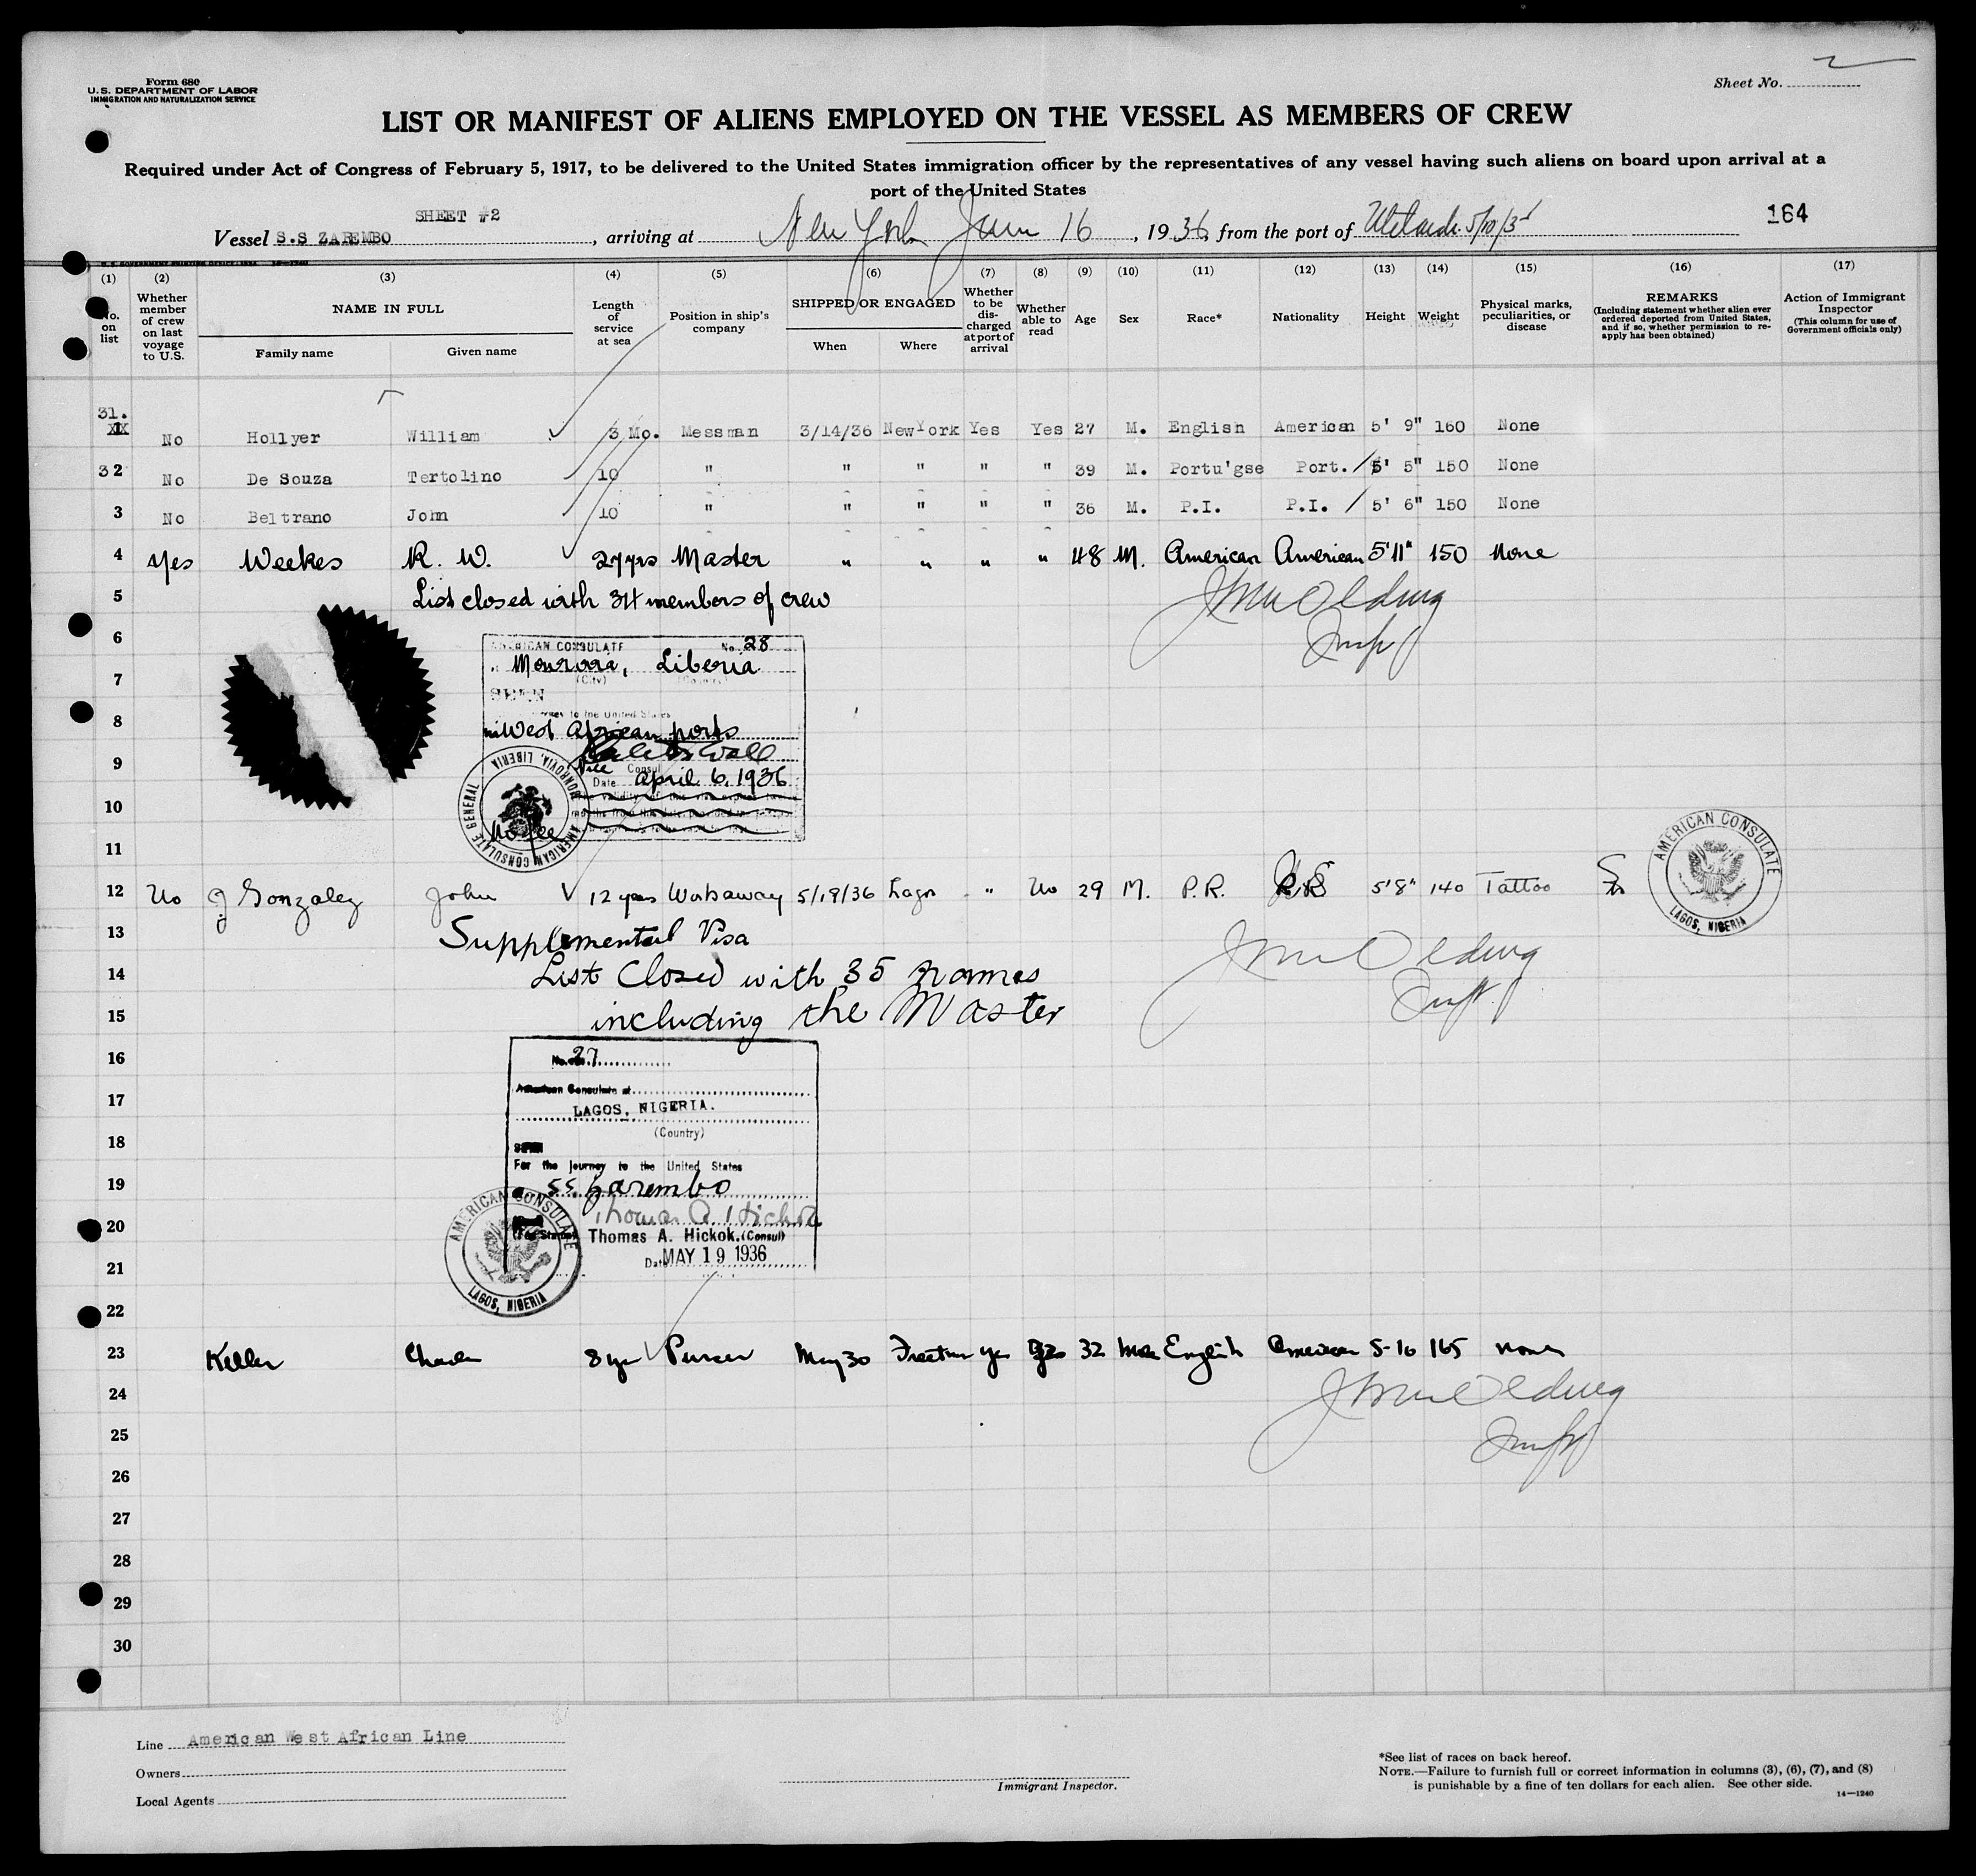 Form 680
U.S. DEPARTMENT OF LABOR
IMMIGRATION AND NATURALIZATION SERVICE
Sheet No. 2
LIST OR MANIFEST OF ALIENS EMPLOYED ON THE VESSEL AS MEMBERS OF CREW
Required under Act of Congress of February 5, 1917, to be delivered to the United States immigration officer by the representatives of any vessel having such aliens on board upon arrival at a
port of the United States
SHEET #2
164
Vessel S.S ZAREMBO, arriving at New York June 16, 1936, from the port of
(1) (2) (3) (4) (5) (6) (7) (8) (9) (10) (11) (12) (13) (14) (15) (16) (17)
No. on list
Whether member of crew on last voyage to U.S.
NAME IN FULL
Family name
Given name
Length of service at sea
Position in ship's company
SHIPPED OR ENGAGED
When
Where
Whether to be discharged at port of arrival
Whether able to read
Age
Sex
Race*
Nationality
Height
Weight
Physical marks, peculiarities, or disease
REMARKS
(Including statement whether alien ever ordered deported from United States, and if so, whether permission to reapply has been obtained)
Action of Immigrant Inspector
(This column for use of Government officials only)
31. No Hollyer William 3 Mo. Messman 3/14/36 New York Yes Yes 27 M. English American 5' 9" 160 None
32 No De Souza Tertolino 10 " " " " " 39 M. Portu'gse Port. 5' 5" 150 None
3 No Beltrano John 10 " " " " " 36 M. P.I. P.I. 5' 6" 150 None
4 Yes Weekes R. W. 27 yrs Master " " " " 48 M. American American 5'11" 150 None
5 List closed with 34 members of crew
6
AMERICAN CONSULATE No. 28
Monrovia, Liberia
(City) (Country)
7
SEEN
8
West African ports
9
Vice Consul
Date April 6, 1936
10
No fee
AMERICAN CONSULATE GENERAL MONROVIA, LIBERIA
11
12 No Gonzalez John 12 years Workaway 5/19/36 Lagos " No 29 M. P.R. 5'8" 140 Tattoo
AMERICAN CONSULATE
LAGOS, NIGERIA
13 Supplemental Visa
14 List Closed with 35 names
15 including the Master
16
No. 27
17
American Consulate at
LAGOS, NIGERIA.
(Country)
18
SEEN
For the journey to the United States
19
S.S. Zarembo
20
Thomas A. Hickok
Thomas A. Hickok. (Consul)
Date MAY 19 1936
AMERICAN CONSULATE
LAGOS, NIGERIA
21
22
23 Keller Charles 8 yrs Purser May 30 Freetown yes yes 32 Male English American 5-10 165 none
24
25
26
27
28
29
30
Line American West African Line
Owners
Local Agents
Immigrant Inspector.
*See list of races on back hereof.
NOTE.—Failure to furnish full or correct information in columns (3), (6), (7), and (8)
is punishable by a fine of ten dollars for each alien. See other side.
14—1240